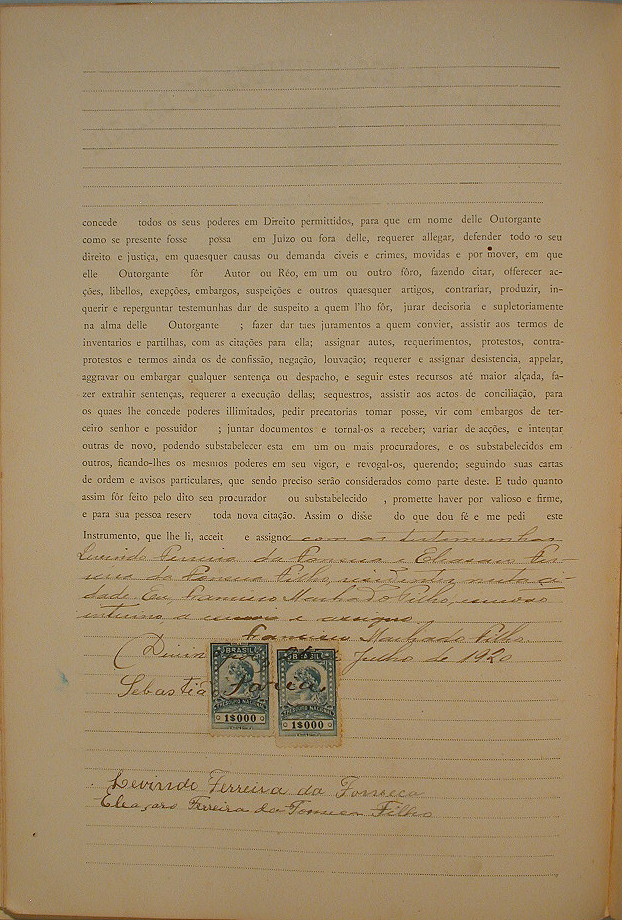 concede todos os seus poderes em Direito permittidos, para que em nome delle Outorgante
como se presente fosse possa em Juizo ou fora delle, requerer allegar, defender todo o seu
direito e justiça, em quaesquer causas ou demanda civeis e crimes, movidas e por mover, em que
elle Outorgante fôr Autor ou Réo, em um ou outro fôro, fazendo citar, offerecer ac-
ções, libellos, exepções, embargos, suspeições e outros quaesquer artigos, contrariar, produzir, in-
querir e reperguntar testemunhas dar de suspeito a quem l'ho fôr, jurar decisoria e supletoriamente
na alma delle Outorgante ; fazer dar taes juramentos a quem convier, assistir aos termos de
inventarios e partilhas, com as citações para ella; assignar autos, requerimentos, protestos, contra-
protestos e termos ainda os de confissão, negação, louvação; requerer e assignar desistencia, appelar,
aggravar ou embargar qualquer sentença ou despacho, e seguir estes recursos até maior alçada, fa-
zer extrahir sentenças, requerer a execução dellas; sequestros, assistir aos actos de conciliação, para
os quaes lhe concede poderes illimitados, pedir precatorias tomar posse, vir com embargos de ter-
ceiro senhor e possuidor ; juntar documentos e tornal-os a receber; variar de acções, e intentar
outras de novo, podendo substabelecer esta em um ou mais procuradores, e os substabelecidos em
outros, ficando-lhes os mesmos poderes em seu vigor, e revogal-os, querendo; seguindo suas cartas
de ordem e avisos particulares, que sendo preciso serão considerados como parte deste. E tudo quanto
assim fôr feito pelo dito seu procurador ou substabelecido , promette haver por valioso e firme,
e para sua pessoa reserv toda nova citação. Assim o disse do que dou fé e me pedi este
Instrumento, que lhe li, acceit e assigno com as testemunhas
Levindo Ferreira da Fonseca e Eleasaro Fer-
reira da Fonseca Filho, residentes nesta ci-
dade Eu Francisco Machado Filho, escrivão
interino a escrevi e assigno.
Francisco Machado Filho
Julho de 1920
Sebastião Faria
BRASIL
THESOURO NACIONAL
1$000
BRASIL
THESOURO NACIONAL
1$000
Levindo Ferreira da Fonseca
Eleazaro Ferreira da Fonseca Filho